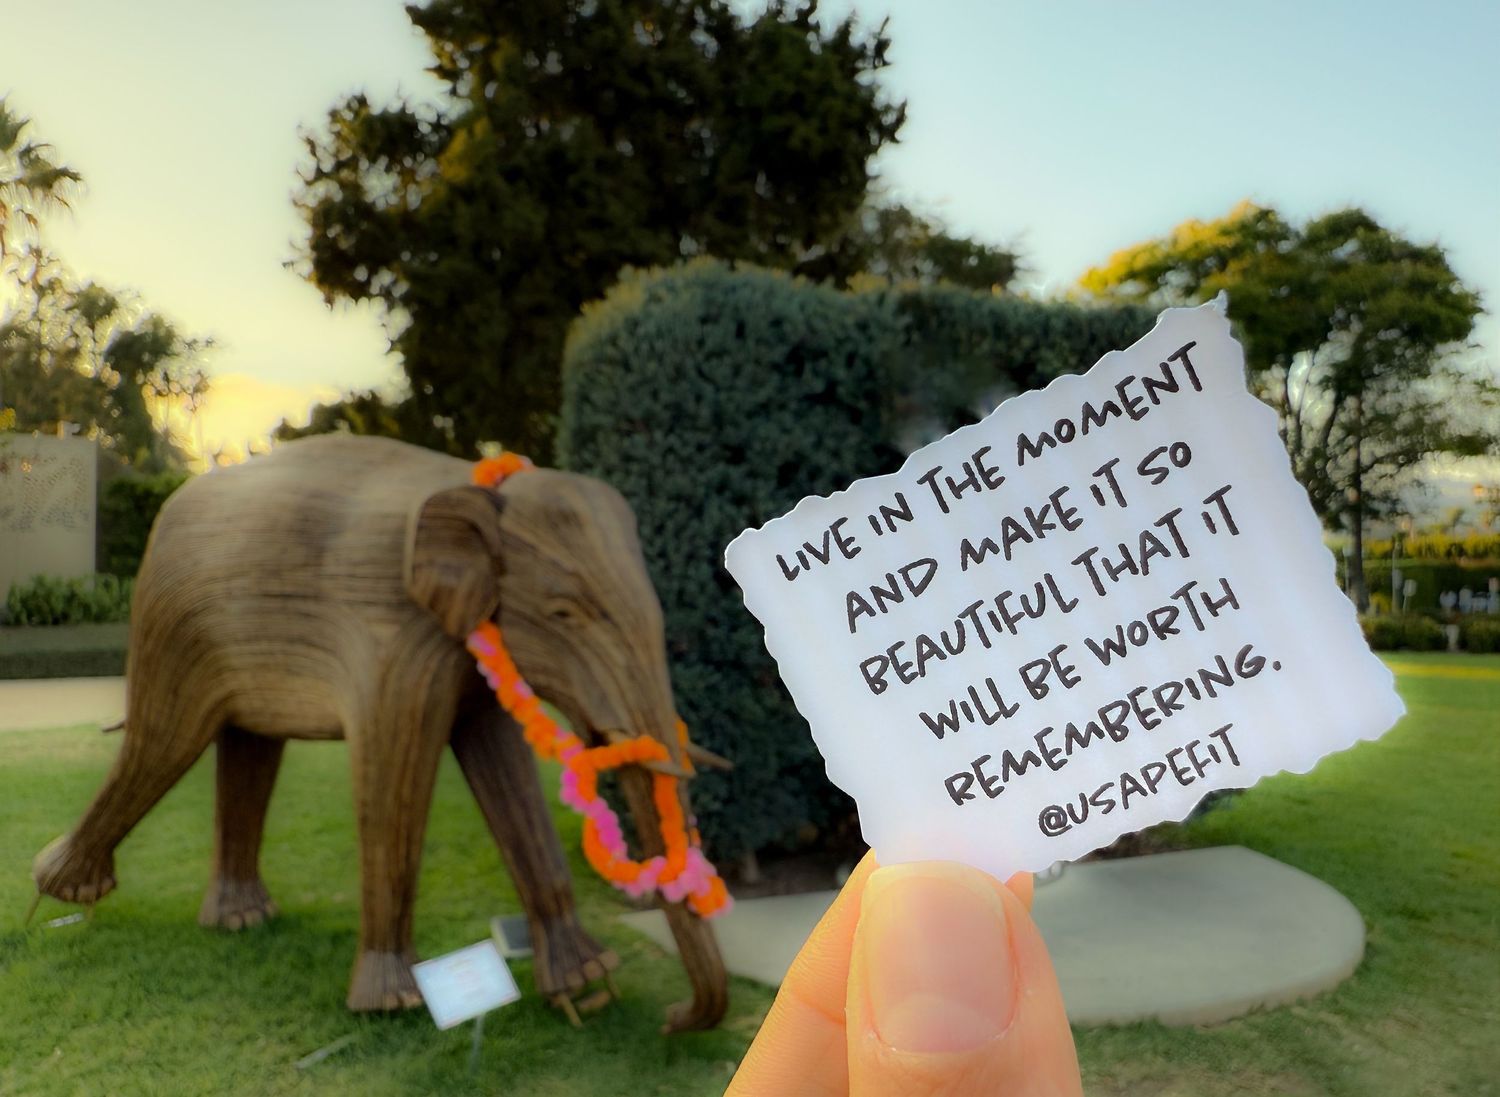 LIVE IN THE MOMENT
AND MAKE IT SO
BEAUTIFUL THAT IT
WILL BE WORTH
REMEMBERING.
@USAPEFIT